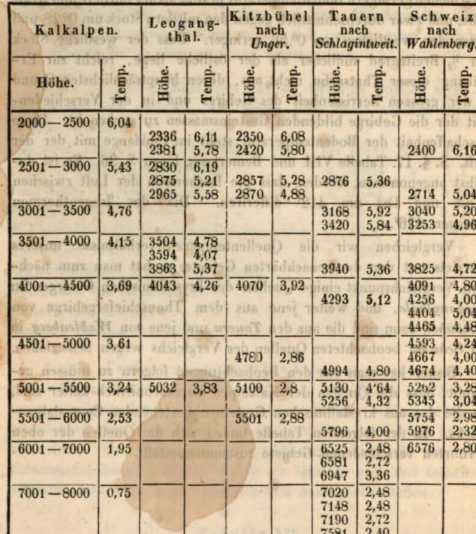 Kalkalpen. Leogang-thal. Kitzbühel nach Unger. Tauern nach Schlagintweit. Schweiz nach Wahlenberg.
Höhe. Temp. Höhe. Temp. Höhe. Temp. Höhe. Temp. Höhe. Temp.
2000—2500 6,04
2336 6,11 2350 6,08
2381 5,78 2420 5,80 2400 6,16
2501—3000 5,43 2830 6,19
2875 5,21 2857 5,28 2876 5,36
2965 5,58 2870 4,88 2714 5,04
3001—3500 4,76 3168 5,92 3040 5,20
3420 5,84 3253 4,96
3501—4000 4,15 3504 4,78
3594 4,07
3863 5,37 3940 5,36 3825 4,72
4001—4500 3,69 4043 4,26 4070 3,92 4091 4,80
4293 5,12 4256 4,00
4404 5,04
4465 4,48
4501—5000 3,61 4593 4,24
4780 2,86 4667 4,00
4994 4,80 4674 4,40
5001—5500 3,24 5032 3,83 5100 2,8 5130 4,64 5262 3,28
5256 4,32 5345 3,04
5501—6000 2,53 5501 2,88 5754 2,98
5796 4,00 5976 2,32
6001—7000 1,95 6525 2,48 6576 2,80
6581 2,72
6947 3,36
7001—8000 0,75 7020 2,48
7148 2,48
7190 2,72
7581 2,40